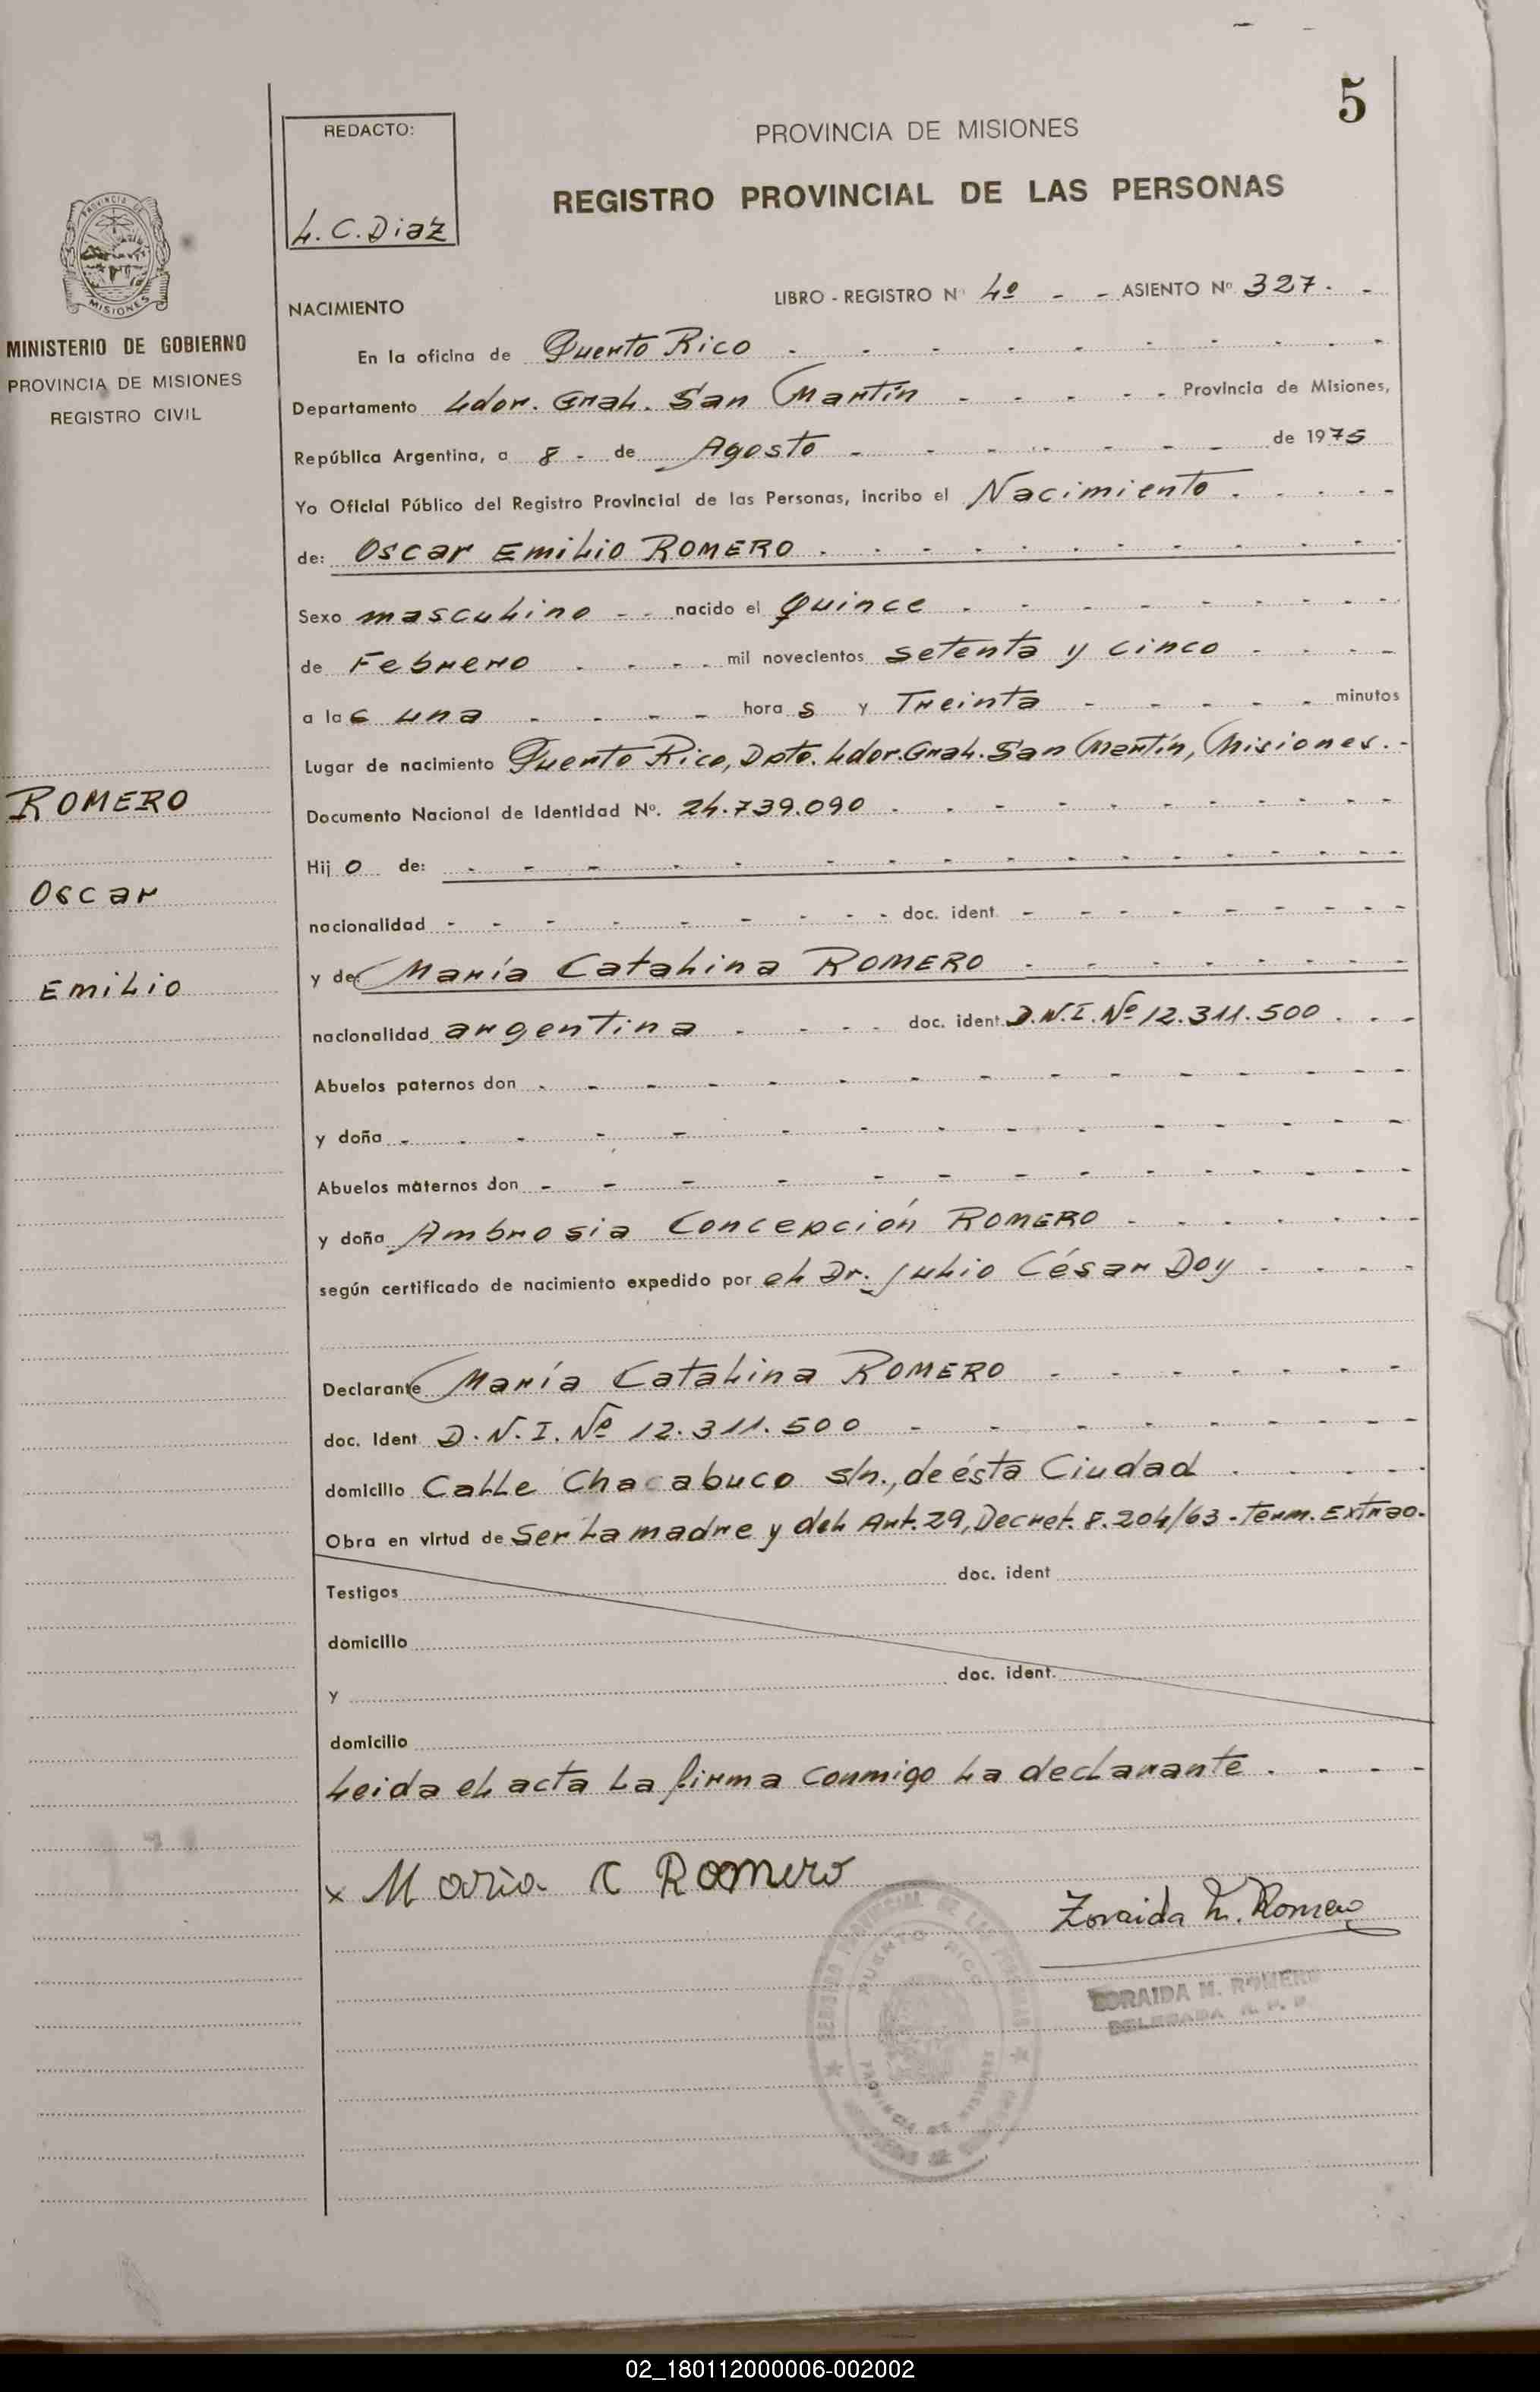 5
REDACTO:
L. C. Diaz
PROVINCIA DE MISIONES
REGISTRO PROVINCIAL DE LAS PERSONAS
PROVINCIA DE
MISIONES
MINISTERIO DE GOBIERNO
PROVINCIA DE MISIONES
REGISTRO CIVIL
ROMERO
Oscar
Emilio
NACIMIENTO
LIBRO - REGISTRO Nº 4º - - ASIENTO Nº 327. -
En la oficina de Puerto Rico
Departamento Ldor. Gral. San Martín - - - - - Provincia de Misiones,
República Argentina, a 8 - de Agosto - - - - - de 1975
Yo Oficial Público del Registro Provincial de las Personas, incribo el Nacimiento
de: Oscar Emilio ROMERO
Sexo masculino - - nacido el quince
de Febrero - - - - mil novecientos setenta y cinco
a las una - - - - hora s y Treinta - - - - - minutos
Lugar de nacimiento Puerto Rico, Dpto. Ldor. Gral. San Martín, Misiones. -
Documento Nacional de Identidad Nº. 24.739.090
Hij o de: - - - - -
nacionalidad - - - - - doc. ident. - - - - -
y de: María Catalina ROMERO
nacionalidad argentina - - - - doc. ident. D.N.I. Nº 12.311.500
Abuelos paternos don - - - - -
y doña - - - - -
Abuelos maternos don - - - - -
y doña Ambrosia Concepción ROMERO
según certificado de nacimiento expedido por el Dr. Julio César Doy
Declarante María Catalina ROMERO
doc. Ident D.N.I. Nº 12.311.500
domicilio Calle Chacabuco s/n., de ésta Ciudad
Obra en virtud de Ser la madre y del Art. 29, Decret. 8.204/63 - Term. Extrao.
Testigos doc. ident
domicilio
y doc. ident.
domicilio
Leida el acta la firma conmigo la declarante
x Maria C Romero
Zoraida M. Romero
ZORAIDA M. ROMERO
DELEGADA R. P. P.
PUERTO RICO
PROVINCIA DE
02_180112000006-002002